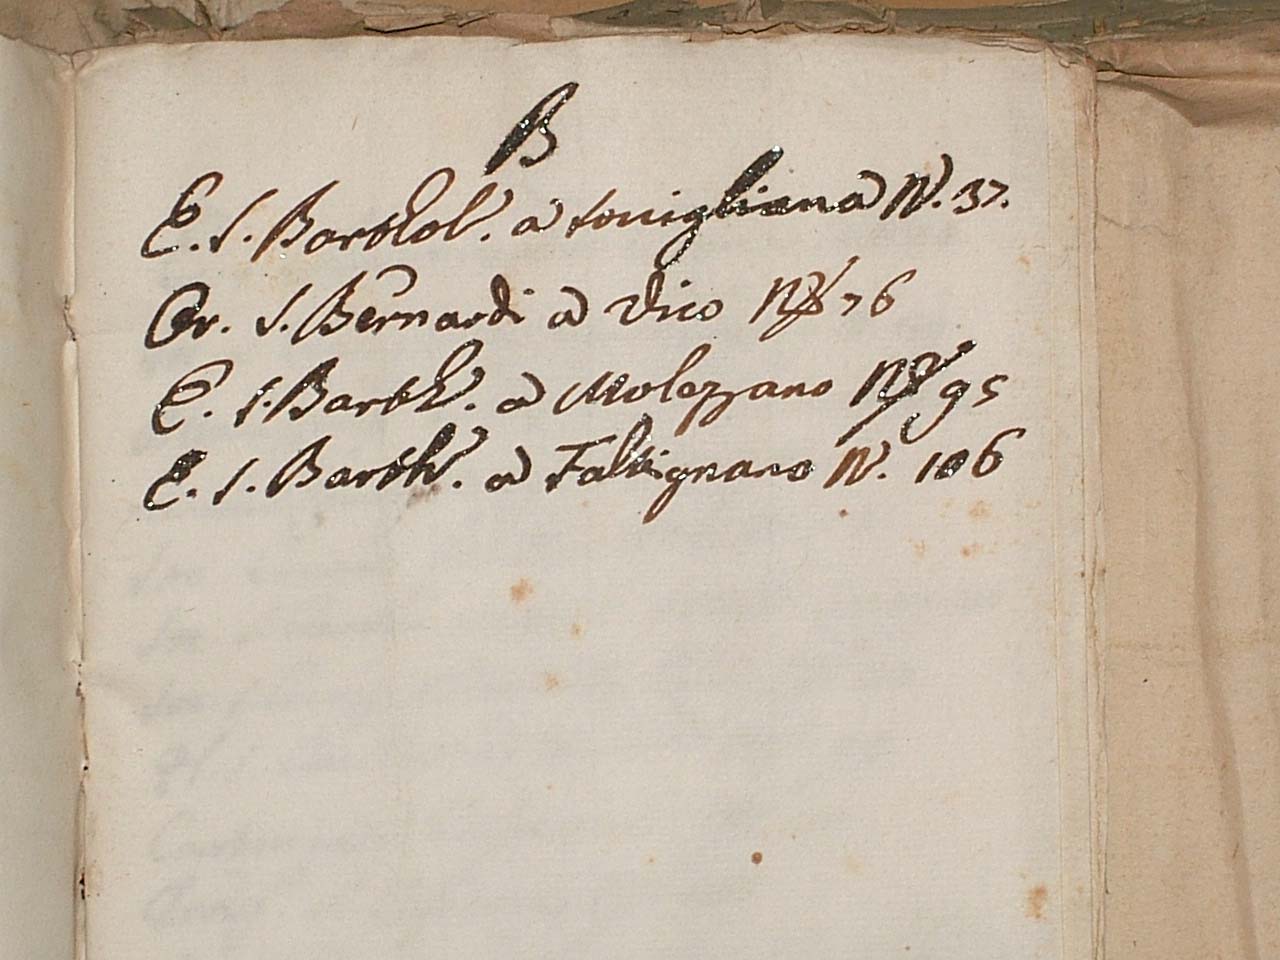 B
E. S. Barthol. a Sonigliana N. 37.
Or. S. Bernardi a Vico N. 76
E. S. Barth. a Molezzano N. 95
E. S. Barth. a Faltignano N. 106